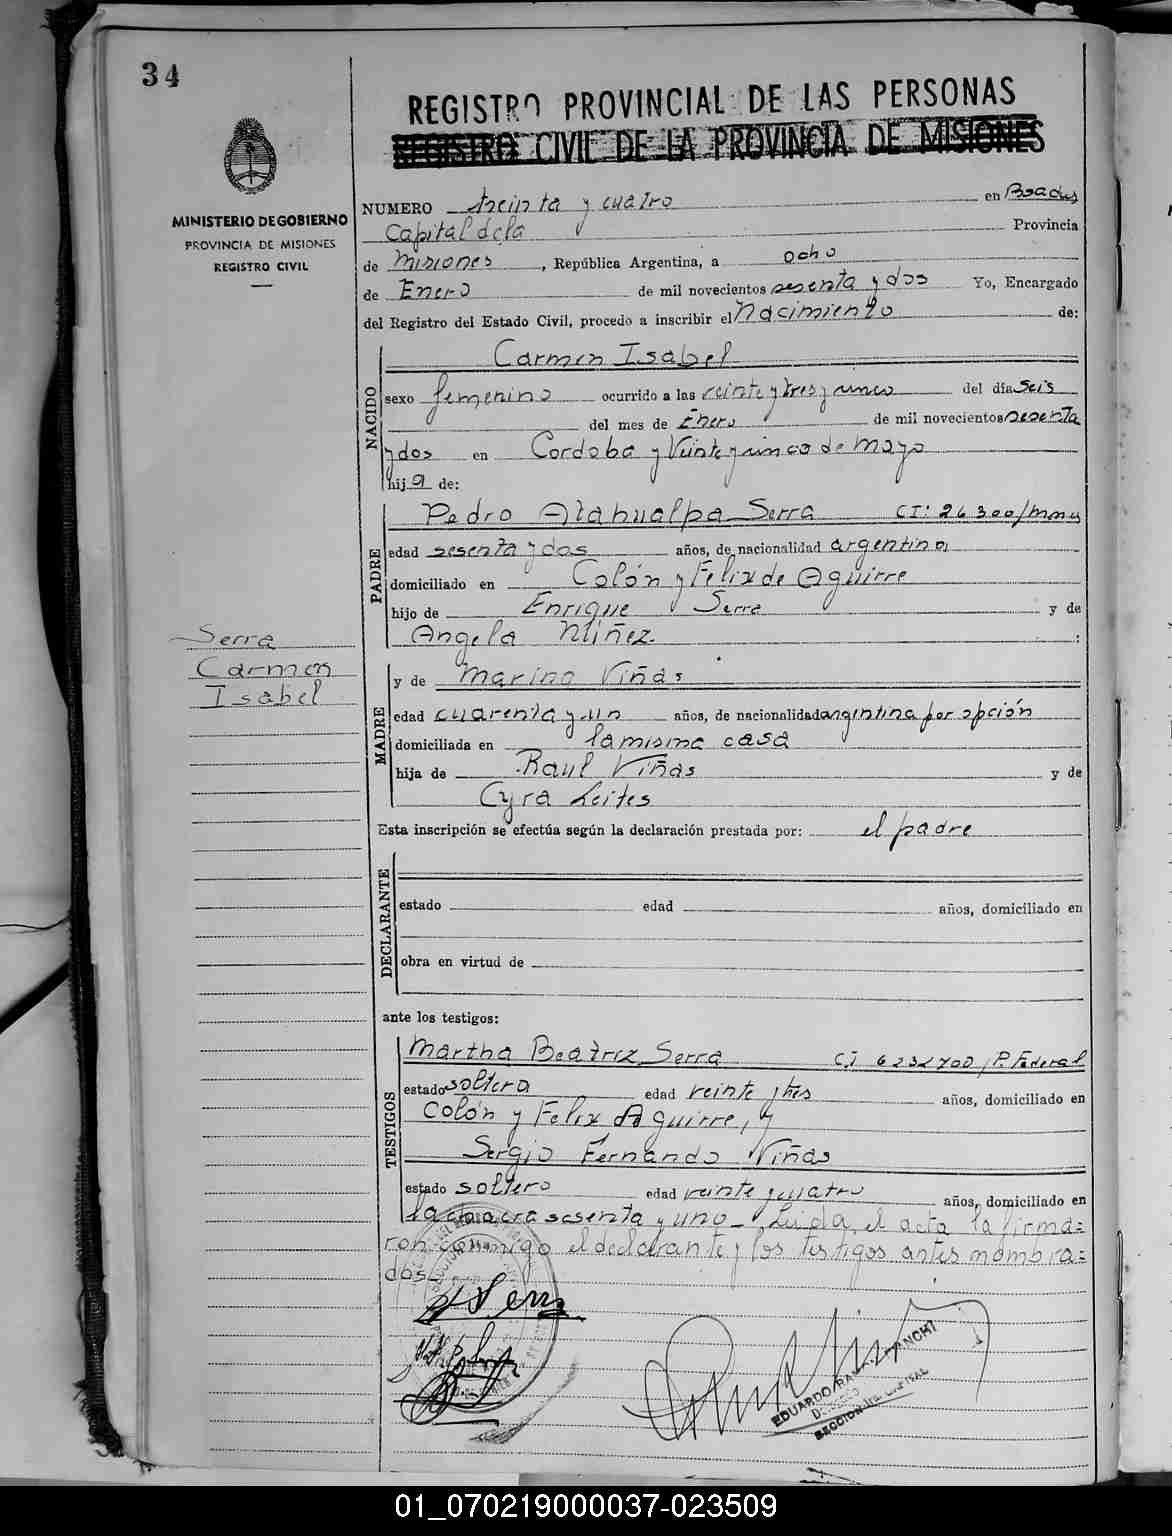 34
REGISTRO PROVINCIAL DE LAS PERSONAS
REGISTRO CIVIL DE LA PROVINCIA DE MISIONES
MINISTERIO DE GOBIERNO
PROVINCIA DE MISIONES
REGISTRO CIVIL
NUMERO treinta y cuatro en Posadas
Capital de la Provincia
de Misiones, República Argentina, a ocho
de Enero de mil novecientos sesenta y dos Yo, Encargado
del Registro del Estado Civil, procedo a inscribir el Nacimiento de:
NACIDO
Carmen Isabel
sexo femenino ocurrido a las veinte y tres y cinco del día seis
del mes de Enero de mil novecientos sesenta
y dos en Cordoba y Veinte y cinco de Mayo
hija de:
PADRE
Pedro Atahualpa Serra CI: 26300/Mnes
edad sesenta y dos años, de nacionalidad argentina
domiciliado en Colón y Felix de Aguirre
hijo de Enrique Serra y de
Angela Núñez
Serra
Carmen
Isabel
MADRE
y de Marina Viñas
edad cuarenta y un años, de nacionalidad argentina por opción
domiciliada en la misma casa
hija de Raul Viñas y de
Cyra Leites
Esta inscripción se efectúa según la declaración prestada por: el padre
DECLARANTE
estado edad años, domiciliado en
obra en virtud de
ante los testigos:
TESTIGOS
Martha Beatriz Serra C.I 6232700/P. Federal
estado soltera edad veinte y tres años, domiciliado en
Colón y Felix Aguirre, y
Sergio Fernando Viñas
estado soltero edad veinte y cuatro años, domiciliado en
la chacra sesenta y uno_ Leida el acta la firma=
ron conmigo el declarante y los testigos antes nombra=
dos.
EDUARDO
SECCION CAPITAL
01_070219000037-023509